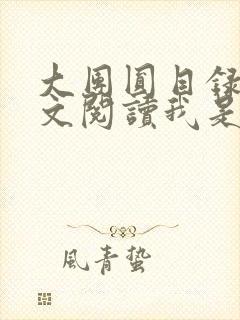 大團圓目錄
文閱讀我是
風青蟄